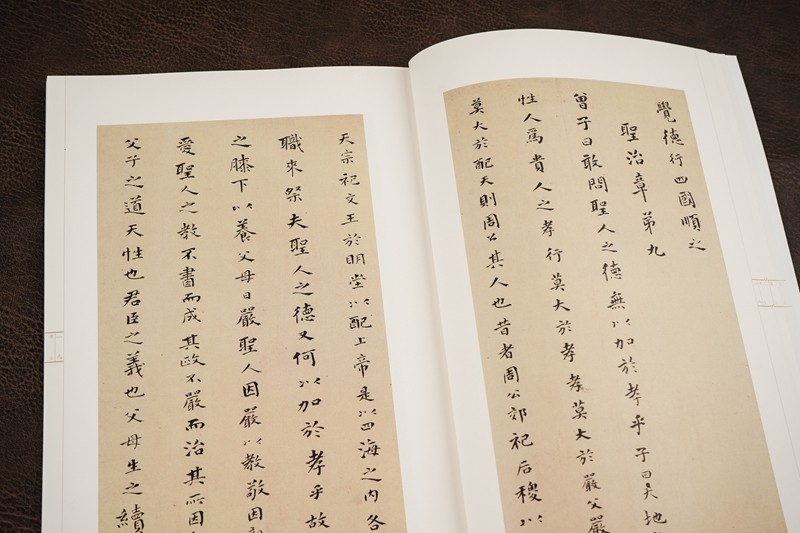 覺德行四國順之
聖治章第九
曾子曰敢問聖人之德無以加於孝乎子曰天地
性人爲貴人之孝行莫大於孝孝莫大於嚴父嚴
莫大於配天則周公其人也昔者周公郊祀后稷以
天宗祀文王於明堂以配上帝是以四海之内各
職來祭夫聖人之德又何以加於孝乎故
之膝下以養父母日嚴聖人因嚴以教敬因
愛聖人之教不肅而成其政不嚴而治其所因
父子之道天性也君臣之義也父母生之續